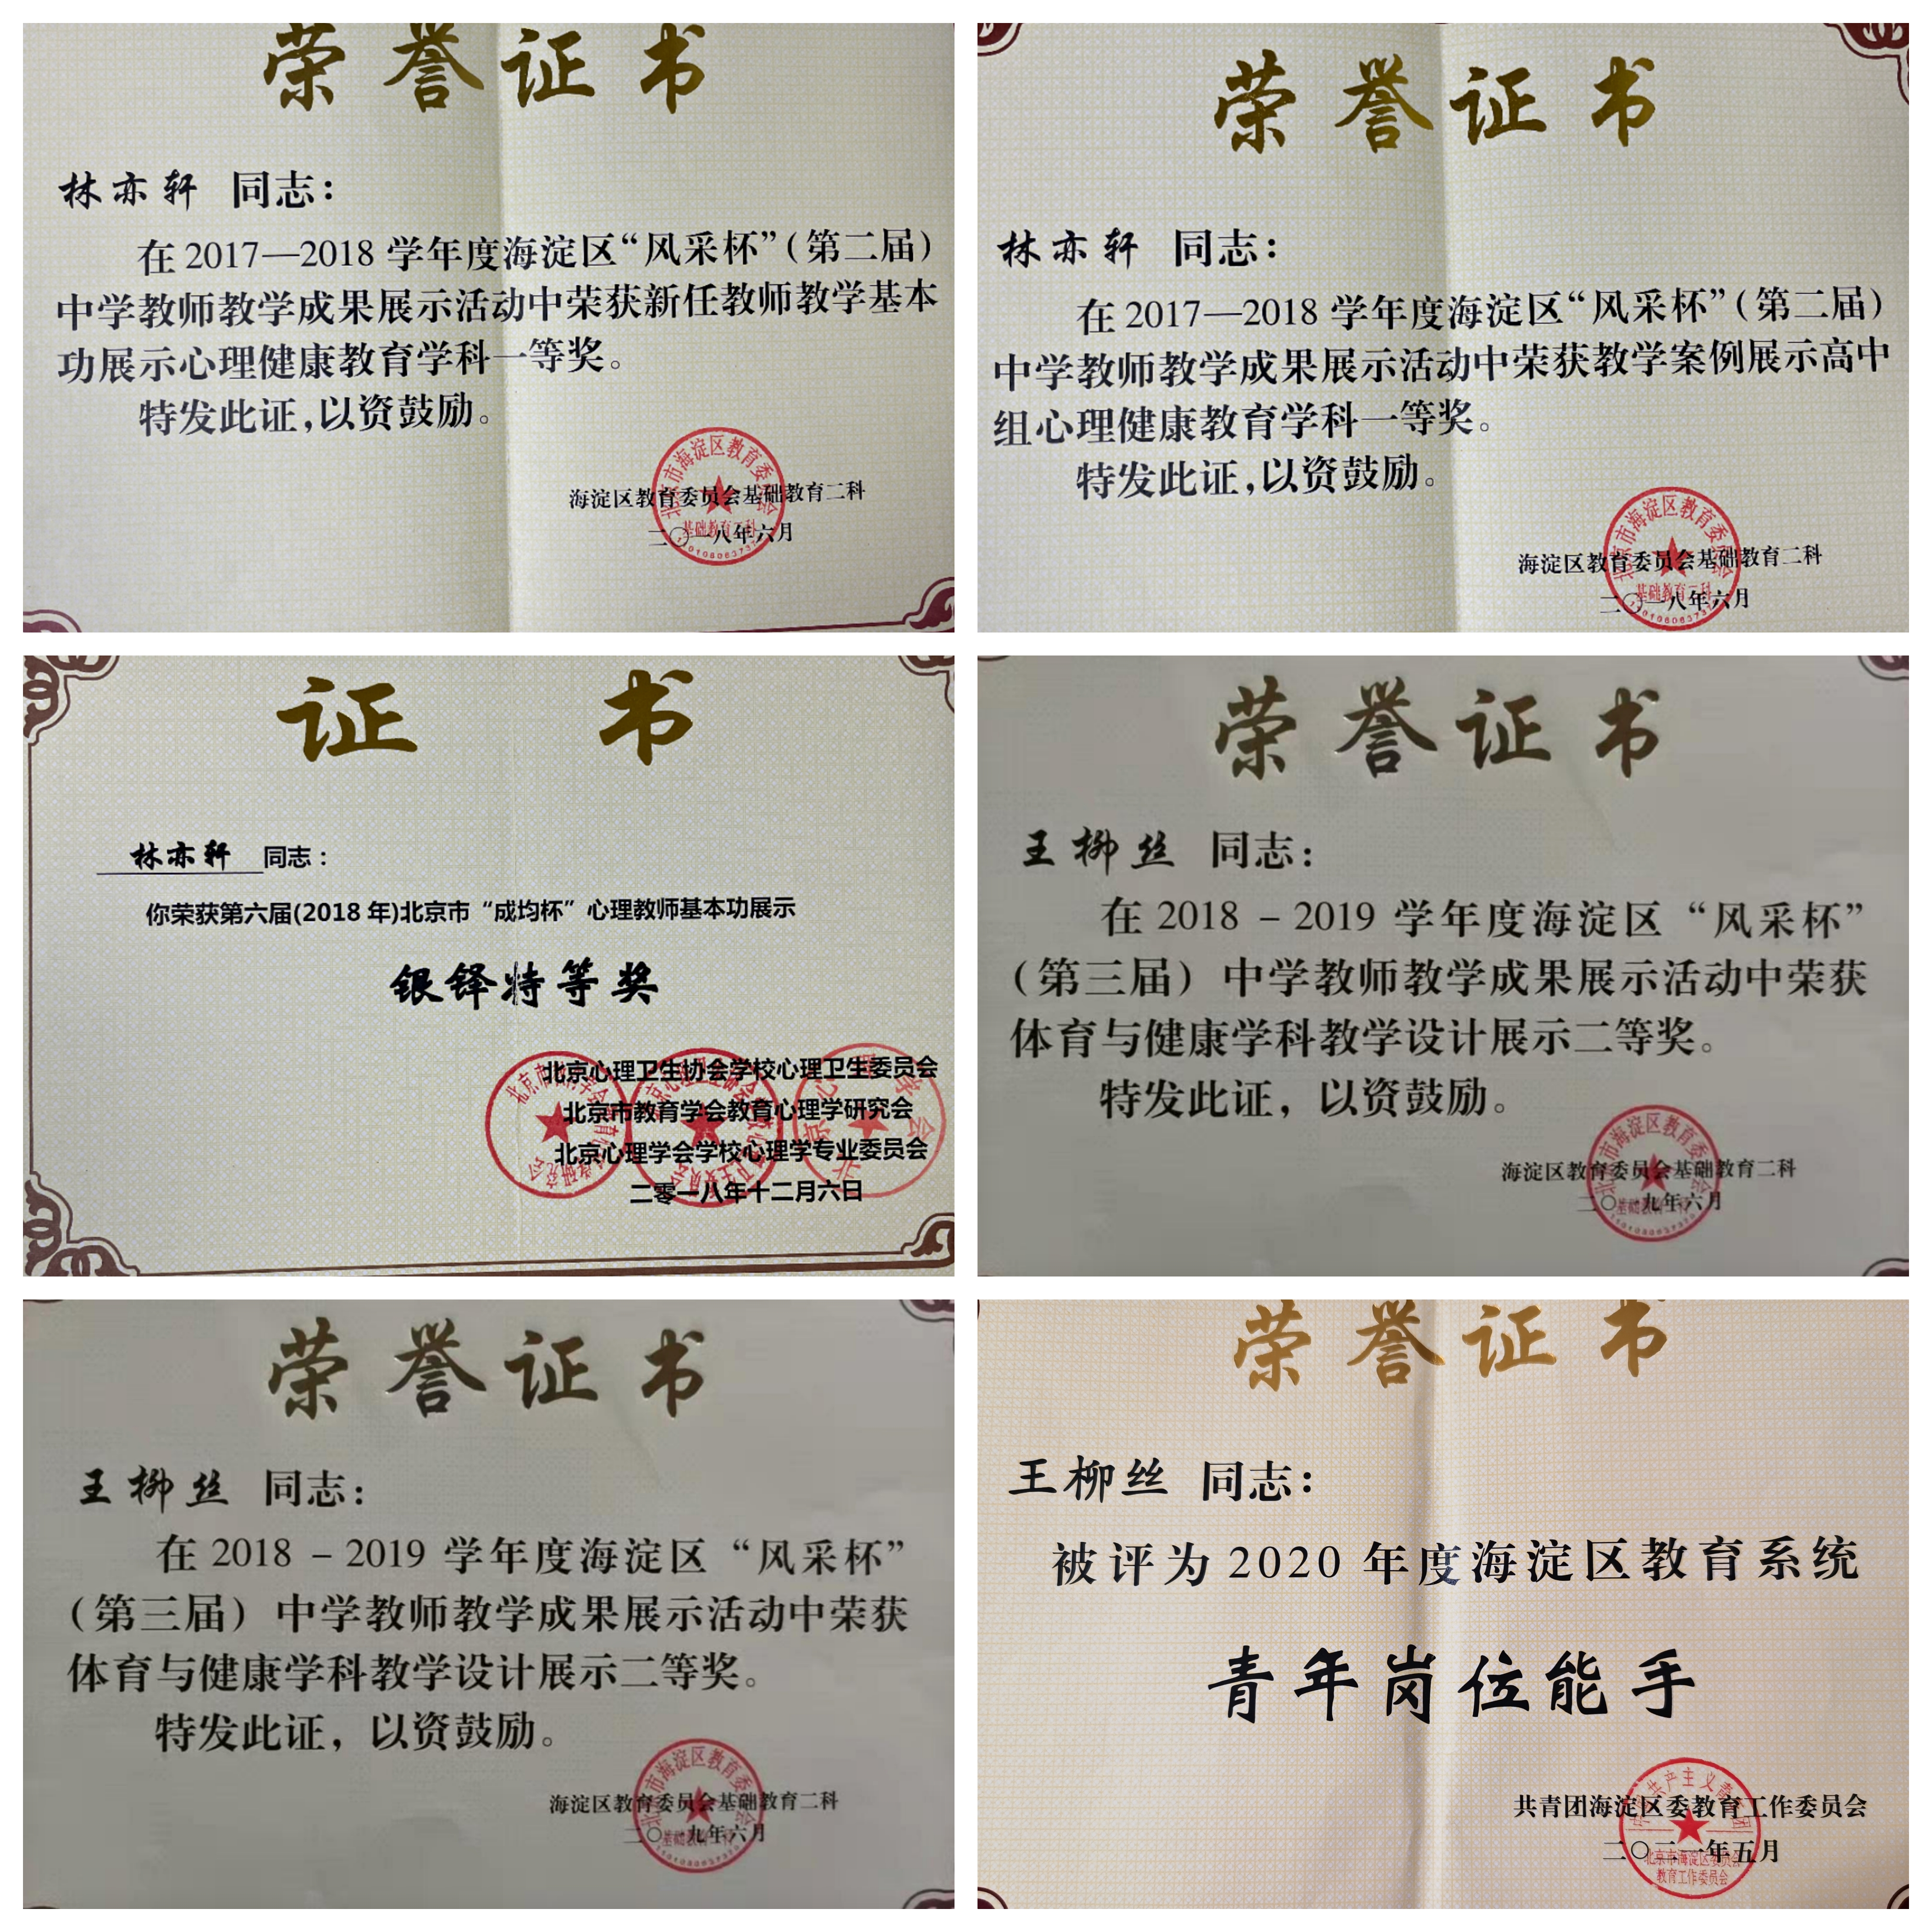 荣誉证书
林亦轩 同志：
在2017—2018学年度海淀区“风采杯”（第二届）
中学教师教学成果展示活动中荣获新任教师教学基本
功展示心理健康教育学科一等奖。
特发此证，以资鼓励。
北京市海淀区教育委员会
海淀区教育委员会基础教育二科
基础教育二科
二〇一八年六月
荣誉证书
林亦轩 同志：
在2017—2018学年度海淀区“风采杯”（第二届）
中学教师教学成果展示活动中荣获教学案例展示高中
组心理健康教育学科一等奖。
特发此证，以资鼓励。
北京市海淀区教育委员会
海淀区教育委员会基础教育二科
基础教育二科
二〇一八年六月
证 书
林亦轩 同志：
你荣获第六届(2018年)北京市“成均杯”心理教师基本功展示
银铎特等奖
北京心理卫生协会学校心理卫生委员会
北京市教育学会教育心理学研究会
北京心理学会学校心理学专业委员会
二零一八年十二月六日
荣誉证书
王柳丝 同志：
在 2018 - 2019 学年度海淀区“风采杯”
（第三届）中学教师教学成果展示活动中荣获
体育与健康学科教学设计展示二等奖。
特发此证，以资鼓励。
北京市海淀区教育委员会
海淀区教育委员会基础教育二科
基础教育二科
二〇一九年六月
荣誉证书
王柳丝 同志：
在 2018 - 2019 学年度海淀区“风采杯”
（第三届）中学教师教学成果展示活动中荣获
体育与健康学科教学设计展示二等奖。
特发此证，以资鼓励。
北京市海淀区教育委员会
海淀区教育委员会基础教育二科
基础教育二科
二〇一九年六月
荣誉证书
王柳丝 同志：
被评为2020年度海淀区教育系统
青年岗位能手
共青团海淀区委教育工作委员会
二〇二一年五月
北京市海淀区委员会
教育工作委员会